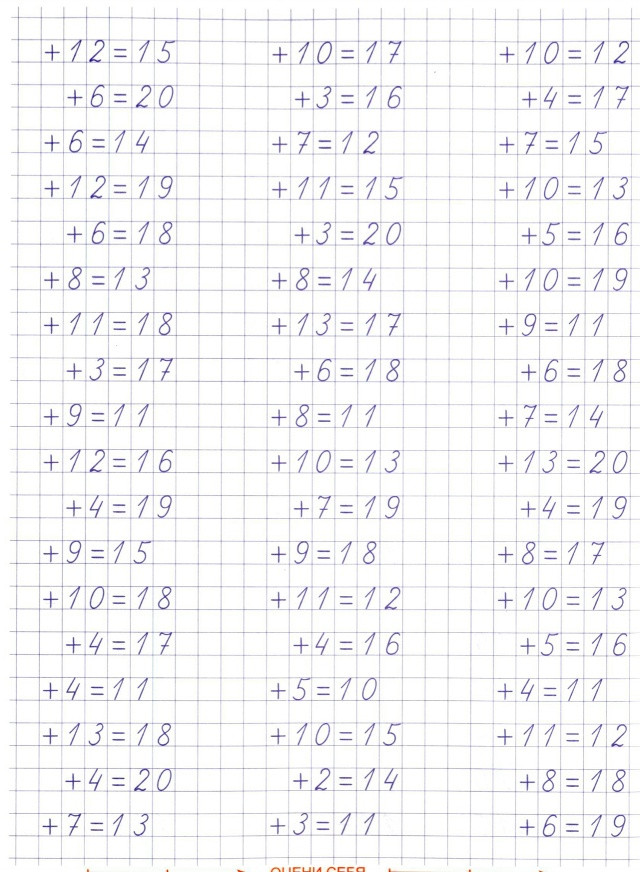 +12=15 +10=17 +10=12
+6=20 +3=16 +4=17
+6=14 +7=12 +7=15
+12=19 +11=15 +10=13
+6=18 +3=20 +5=16
+8=13 +8=14 +10=19
+11=18 +13=17 +9=11
+3=17 +6=18 +6=18
+9=11 +8=11 +7=14
+12=16 +10=13 +13=20
+4=19 +7=19 +4=19
+9=15 +9=18 +8=17
+10=18 +11=12 +10=13
+4=17 +4=16 +5=16
+4=11 +5=10 +4=11
+13=18 +10=15 +11=12
+4=20 +2=14 +8=18
+7=13 +3=11 +6=19
ОЦЕНИ СЕБЯ